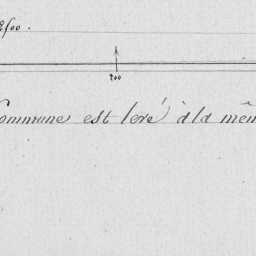 200
Commune est levé à la mêm